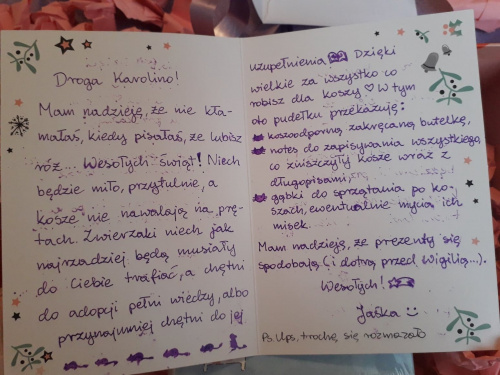 Droga Karolino!
Mam nadzieję, że nie kła-
małaś, kiedy pisałaś, że lubisz
róż. Wesołych świąt! Niech
będzie miło, przytulnie, a
kosze nie nawalają na prę-
tach. Zwierzaki niech jak
najrzadziej będą musiały
do Ciebie trafiać, a chętni
do adopcji pełni wiedzy, albo
przynajmniej chętni do jej
uzupełnienia Dzięki
wielkie za wszystko co
robisz dla koszy ♡ W tym
oto pudełku przekazuję:
koszoodporną zakręcaną butelkę,
notes do zapisywania wszystkiego,
co zniszczyły kosze wraz z
długopisami,
gąbki do sprzątania po ko-
szach, ewentualnie mycia ich
misek.
Mam nadzieję, że prezenty się
spodobają (i dotrą przed Wigilią...).
Wesołych!
Jaśka :)
Ps. Ups, trochę się rozmazało